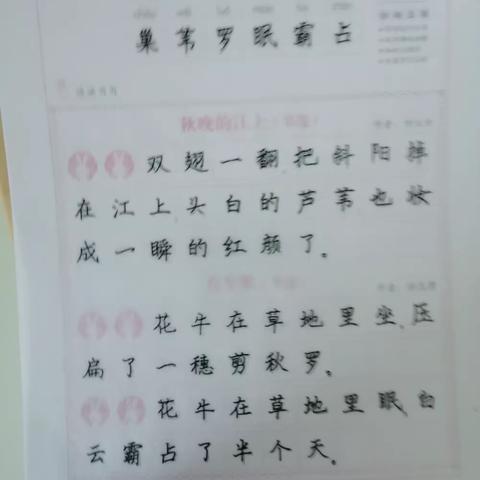 巢苇罗眠霸占
秋晚的江上(节选)
双翅一翻,把斜阳掉
在江上,头白的芦苇,也妆
成一瞬的红颜了。
花牛在草地里坐,压
扁了一穗剪秋罗。
花牛在草地里眠,白
云霸占了半个天。